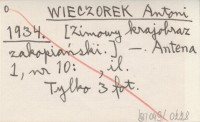 O
WIECZOREK Antoni
1934. [Zimowy krajobraz
zakopiański.] — Antena
1, nr 10: , il.
Tylko 3 fot.